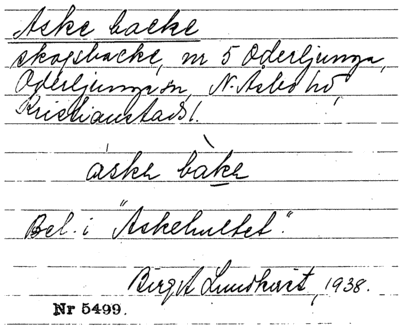 Aske backe
skogsbacke, nr 5 Oderljunga,
Oderljunga sn, N. Åsbo hd,
Kristianstads l.
áske bàke
Bel. i "Askehultet".
Birgit Lundkvist, 1938.
Nr 5499.